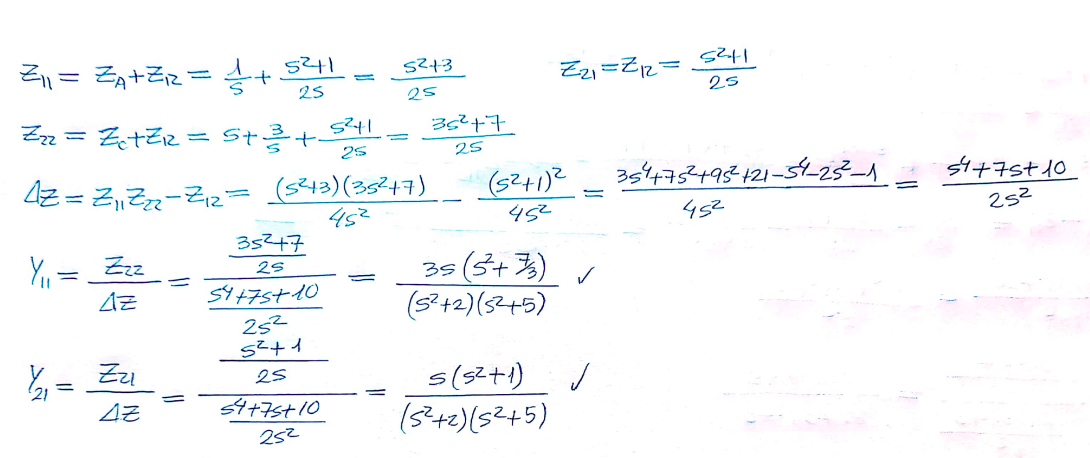 Z₁₁ = Z_A + Z₁₂ = 1/s + (s²+1)/(2s) = (s²+3)/(2s)    Z₂₁ = Z₁₂ = (s²+1)/(2s)
Z₂₂ = Z_C + Z₁₂ = s + 3/s + (s²+1)/(2s) = (3s²+7)/(2s)
ΔZ = Z₁₁Z₂₂ − Z₁₂ = (s²+3)(3s²+7)/(4s²) − (s²+1)²/(4s²) = (3s⁴+7s²+9s²+21−s⁴−2s²−1)/(4s²) = (s⁴+7s+10)/(2s²)
Y₁₁ = Z₂₂/ΔZ = ((3s²+7)/(2s))/((s⁴+7s+10)/(2s²)) = 3s(s²+7/3)/((s²+2)(s²+5)) ✓
Y₂₁ = Z₂₁/ΔZ = ((s²+1)/(2s))/((s⁴+7s+10)/(2s²)) = s(s²+1)/((s²+2)(s²+5)) ✓